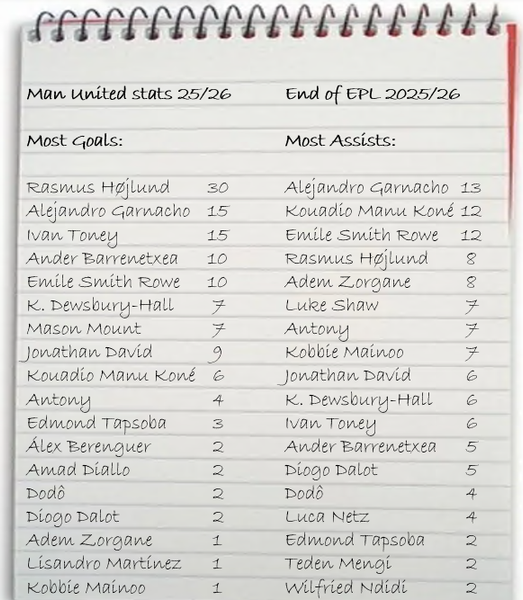 Man United stats 25/26 End of EPL 2025/26
Most Goals: Most Assists:
Rasmus Højlund 30 Alejandro Garnacho 13
Alejandro Garnacho 15 Kouadio Manu Koné 12
Ivan Toney 15 Emile Smith Rowe 12
Ander Barrenetxea 10 Rasmus Højlund 8
Emile Smith Rowe 10 Adem Zorgane 8
K. Dewsbury-Hall 7 Luke Shaw 7
Mason Mount 7 Antony 7
Jonathan David 9 Kobbie Mainoo 7
Kouadio Manu Koné 6 Jonathan David 6
Antony 4 K. Dewsbury-Hall 6
Edmond Tapsoba 3 Ivan Toney 6
Álex Berenguer 2 Ander Barrenetxea 5
Amad Diallo 2 Diogo Dalot 5
Dodô 2 Dodô 4
Diogo Dalot 2 Luca Netz 4
Adem Zorgane 1 Edmond Tapsoba 2
Lisandro Martínez 1 Teden Mengi 2
Kobbie Mainoo 1 Wilfried Ndidi 2